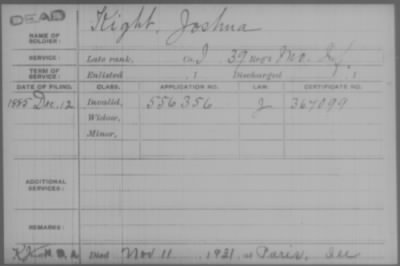 DEAD
NAME OF SOLDIER: Kight, Joshua
SERVICE: Late rank, Co. I 39 Reg't Mo. Inf.
TERM OF SERVICE: Enlisted , 1 Discharged , 1
DATE OF FILING. CLASS. APPLICATION NO. LAW. CERTIFICATE NO.
1885 Dec. 12 Invalid, 556356 J 367099
Widow,
Minor,
ADDITIONAL SERVICES:
REMARKS:
Died Nov 11, 1921, at Paris, Ill